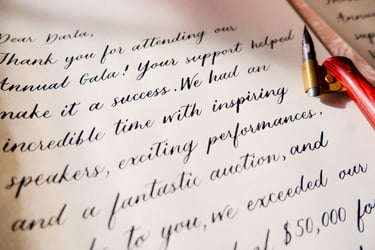 Dear Darla,
Thank you for attending our
Annual Gala! Your support helped
make it a success. We had an
incredible time with inspiring
speakers, exciting performances,
and a fantastic auction, and
to you, we exceeded our
$50,000 fo